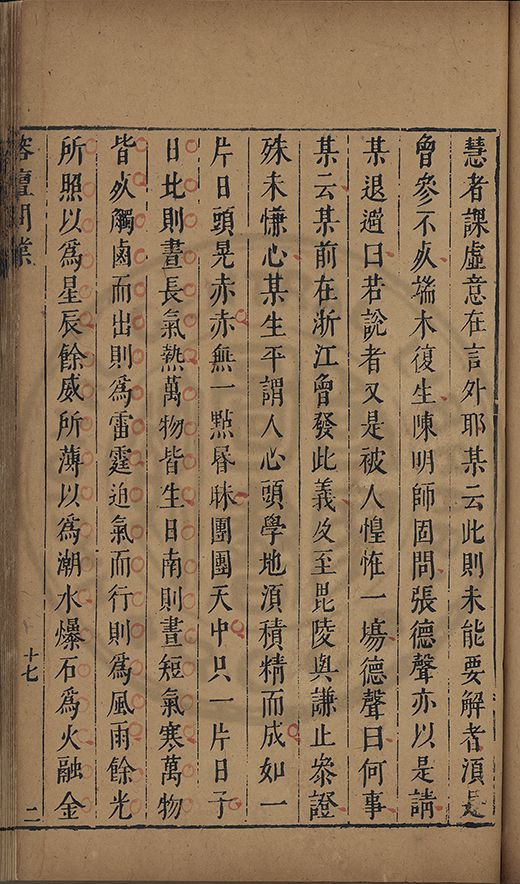 慧者課虛意在言外耶某云此則未能要解者須是
曾參不死端木復生陳明師固問張德聲亦以是請
某退遜曰若說者又是被人惶恠一塲德聲曰何事
某云某前在浙江曾發此義及至毘陵與謙止叅證
殊未慊心某生平謂人心頭學地湏積精而成如一
片日頭晃赤赤無一點昬昧團團天中只一片日子
日北則晝長氣熱萬物皆生日南則晝短氣寒萬物
皆死觸鹵而出則爲雷霆迫氣而行則爲風雨餘光
所照以爲星辰餘威所薄以爲潮水爆石爲火融金
榕壇問業
十七
二